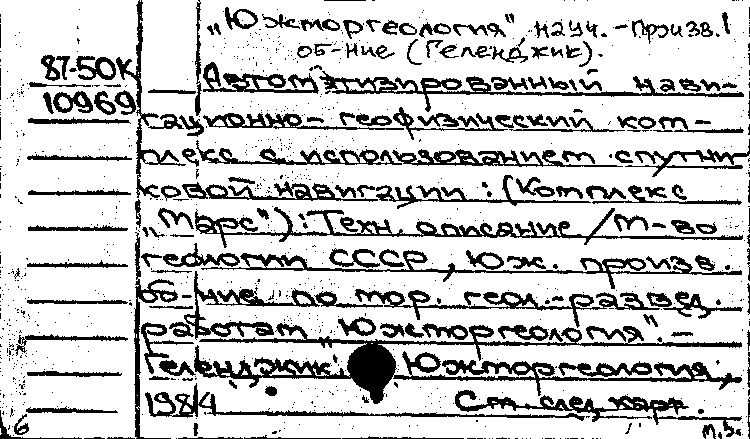 „Южморгеология", науч.-произв.
об-ние (Геленджик).
87-50К
10969
Автоматизированный нави-
гационно-геофизический ком-
плекс с использованием спутни-
ковой навигации: (Комплекс
„Марс"): Техн. описание / М-во
геологии СССР, Юж. произв.
об-ние по мор. геол.-развед.
работам „Южморгеология". –
Геленджик: Южморгеология,
1984
См. след. карт.
6
м.з.